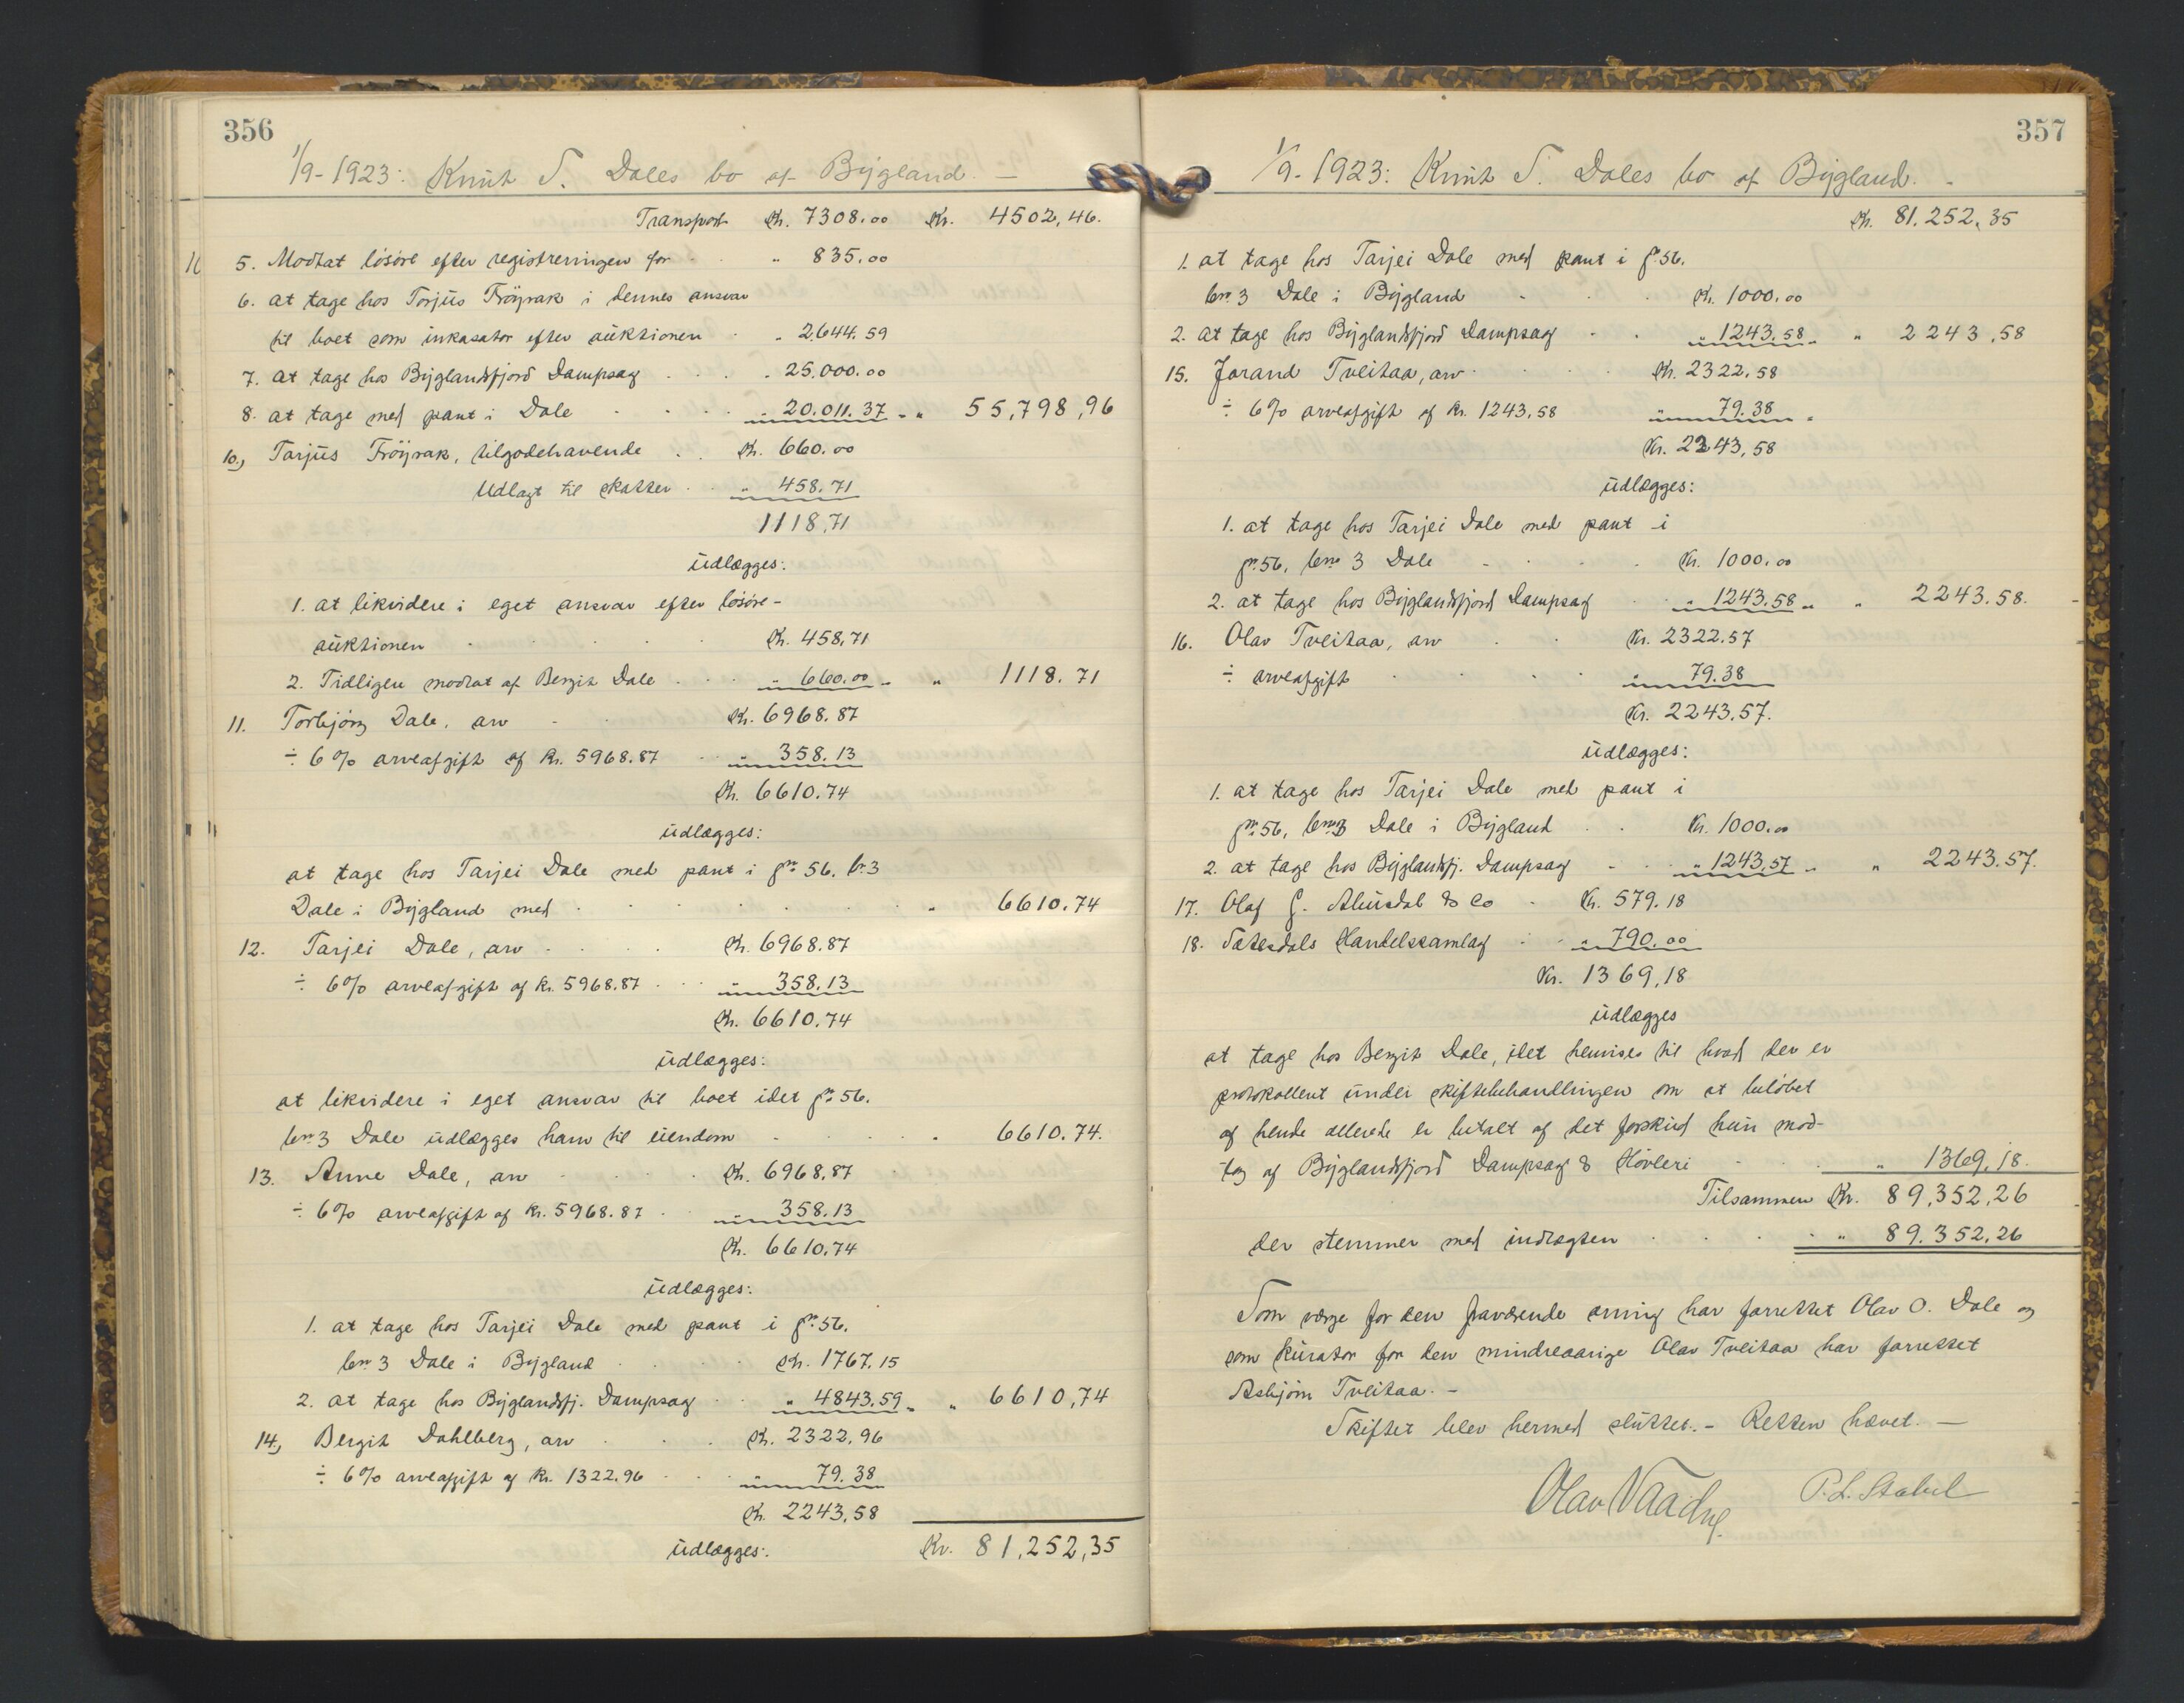 356
1/9-1923: Knut T. Dales bo af Bygland. —
Transport Kr. 7308.00 Kr. 4502,46.
5. Modtat lösöre efter registreringen for " 835.00
6. at tage hos Torjus Fröyrak i dennes ansvar
til boet som inkasator efter auktionen " 2644.59
7. at tage hos Byglandsfjord Dampsag " 25.000.00
8. at tage med pant i Dale " 20.011.37 " " 55,798,96
10., Tarjus Fröyrak, tilgodehavende Kr. 660.00
Udlagt til skatter " 458.71
1118,71
udlægges:
1. at likvidere i eget ansvar efter lösöre-
auktionen Kr. 458,71
2. Tidligere modtat af Bergit Dale " 660.00 " " 1118.71
11. Torbjörg Dale, arv Kr. 6968.87
÷ 6% arveafgift af Kr. 5968.87 " 358.13
Kr. 6610.74
udlægges:
at tage hos Tarjei Dale med pant i gnr 56. br. 3
Dale i Bygland med " 6610.74
12. Tarjei Dale, arv Kr. 6968.87
÷ 6% arveafgift af Kr. 5968.87 " 358.13
Kr. 6610.74
udlægges:
at likvidere i eget ansvar til boet idet gnr 56.
bnr 3 Dale udlægges ham til eiendom " 6610.74.
13. Anne Dale, arv Kr. 6968,87
÷ 6% arveafgift af Kr. 5968.87 " 358.13
Kr. 6610.74
udlægges:
1. at tage hos Tarjei Dale med pant i gnr 56.
bnr 3 Dale i Bygland Kr. 1767.15
2. at tage hos Byglandsfj. Dampsag " 4843.59 " " 6610,74
14., Bergit Dahlberg, arv Kr. 2322,96
÷ 6% arveafgift af Kr. 1322.96 " 79.38
Kr. 2243,58
udlægges: Kr. 81,252,35
357
1/9-1923: Knut T. Dales bo af Bygland. -
Kr. 81.252,35
1. at tage hos Tarjei Dale med pant i gr. 56.
bnr 3 Dale i Bygland Kr. 1000.00
2. at tage hos Byglandsfjord Dampsag " 1243.58 " " 2243,58
15. Jorand Tveitaa, arv Kr. 2322.58
÷ 6% arveafgift af Kr. 1243,58 " 79.38 "
Kr. 2243,58
udlægges:
1. at tage hos Tarjei Dale med pant i
gnr 56, bnr 3 Dale Kr. 1000.00
2. at tage hos Byglandsfjord Dampsag " 1243.58 " " 2243.58.
16. Olav Tveitaa, arv Kr. 2322.57
÷ arveafgift " 79.38
Kr. 2243.57.
udlægges:
1. at tage hos Tarjei Dale med pant i
gnr 56, bnr 3 Dale i Bygland Kr. 1000.00
2. at tage hos Byglandsfj. Dampsag " 1243,57 " " 2243.57.
17. Olaf G. & Co Kr. 579.18
18. Sætesdals Handelssamlag " 790.00
Kr. 1369,18
udlægges
at tage hos Bergit Dale, idet henvises til hvad der er
protokollert under skiftebehandlingen om at belöbet
af hende allerede er betalt af det forskud hun mod-
tog af Byglandsfjord Dampsag & Hövleri " 1369,18.
Tilsammen Kr. 89,352,26
der stemmer med indtægten " 89.352,26
Som verge for den fraværende arving har forrettet Olav O. Dale og
som kurator for den mindreaarige Olav Tveitaa har forrettet
Asbjörn Tveitaa. -
Skiftet blev hermed sluttet. - Retten hævet. —
P. L. Stabel